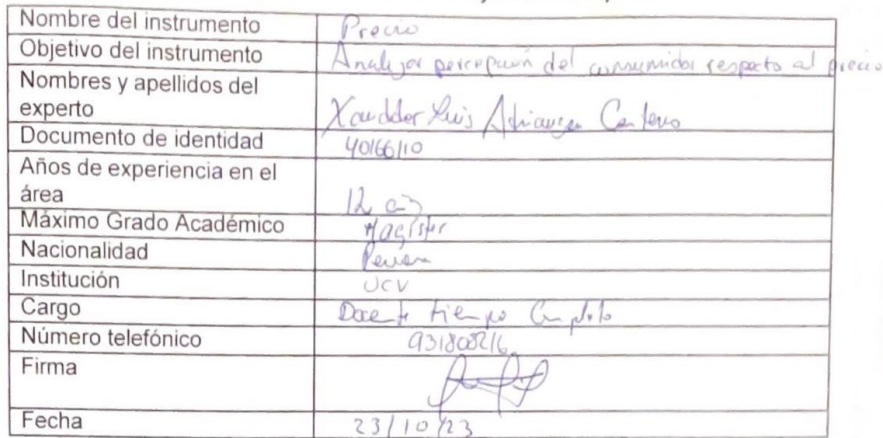 Nombre del instrumento Precio
Objetivo del instrumento Analizar percepción del consumidor respecto al precio
Nombres y apellidos del
experto Xandder Luis
Documento de identidad 40166110
Años de experiencia en el
área 12
Máximo Grado Académico Magister
Nacionalidad Peruana
Institución UCV
Cargo Docente tiempo Completo
Número telefónico
Firma
Fecha 23/10/23